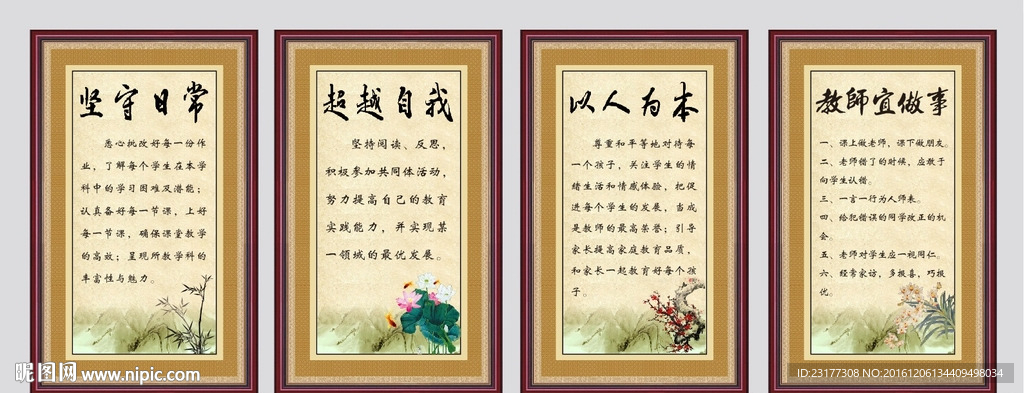 坚守日常
悉心批改好每一份作
业，了解每个学生在本学
科中的学习困难及潜能；
认真备好每一节课，上好
每一节课，确保课堂教学
的高效；呈现所教学科的
丰富性与魅力。
超越自我
坚持阅读、反思，
积极参加共同体活动，
努力提高自己的教育
实践能力，并实现某
一领域的最优发展。
以人为本
尊重和平等地对待每
一个孩子，关注学生的情
绪生活和情感体验，把促
进每个学生的发展，当成
是教师的最高荣誉；引导
家长提高家庭教育品质，
和家长一起教育好每个孩
子。
教師宜做事
一、课上做老师，课下做朋友。
二、老师错了的时候，应敢于
向学生认错。
三、一言一行为人师表。
四、给犯错误的同学改正的机
会。
五、老师对学生应一视同仁。
六、经常家访，多报喜，巧报
忧。
昵图网 www.nipic.com
ID:23177308 NO:20161206134409498034